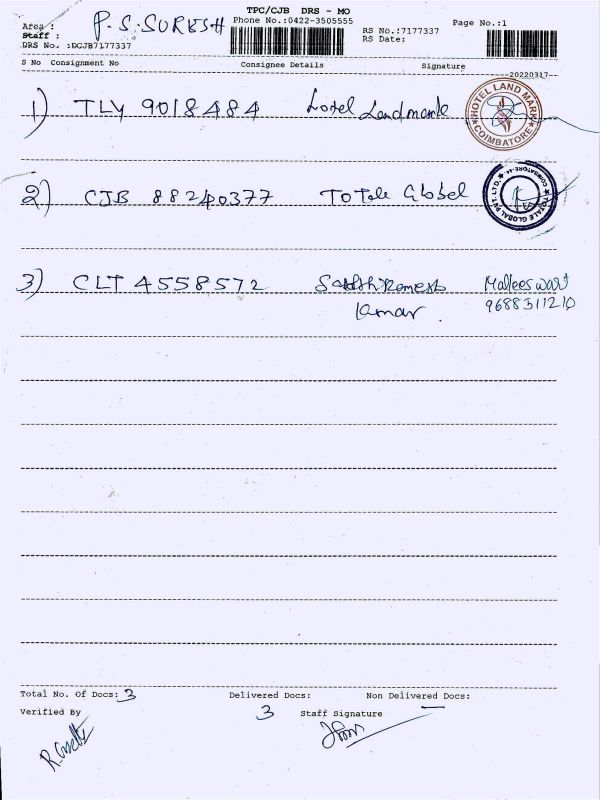 TPC/CJB DRS - MO
Area :
P. S. SURESH
Phone No.:0422-3505555
Page No.:1
Staff :
RS No.:7177337
DRS No. :DCJB7177337
RS Date:
S No Consignment No Consignee Details Signature
20220317
1) TLY 9018484 Hotel Landmark
HOTEL LAND MARK
COIMBATORE
2) CJB 88240377 ToTale Global
TOTALE GLOBAL PVT. LTD.
COIMBATORE
3) CLT 4558572 Ramesh Malleeswari
Kumar 9688311210
Total No. Of Docs: 3 Delivered Docs: 3 Non Delivered Docs: —
Verified By
Staff Signature